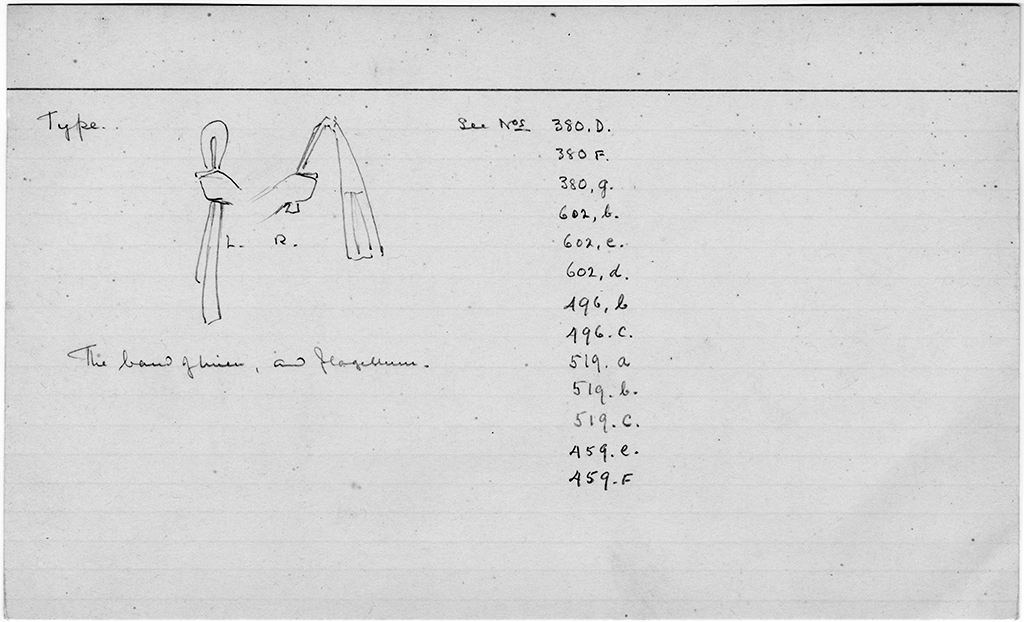 Type.
See Nos 380, D.
380 F.
380, g.
602, b.
602, e.
602, d.
496, b
496. c.
519. a
519. b.
519. c.
459. e.
459. F
L. R.
The band of linen, and flagellum.